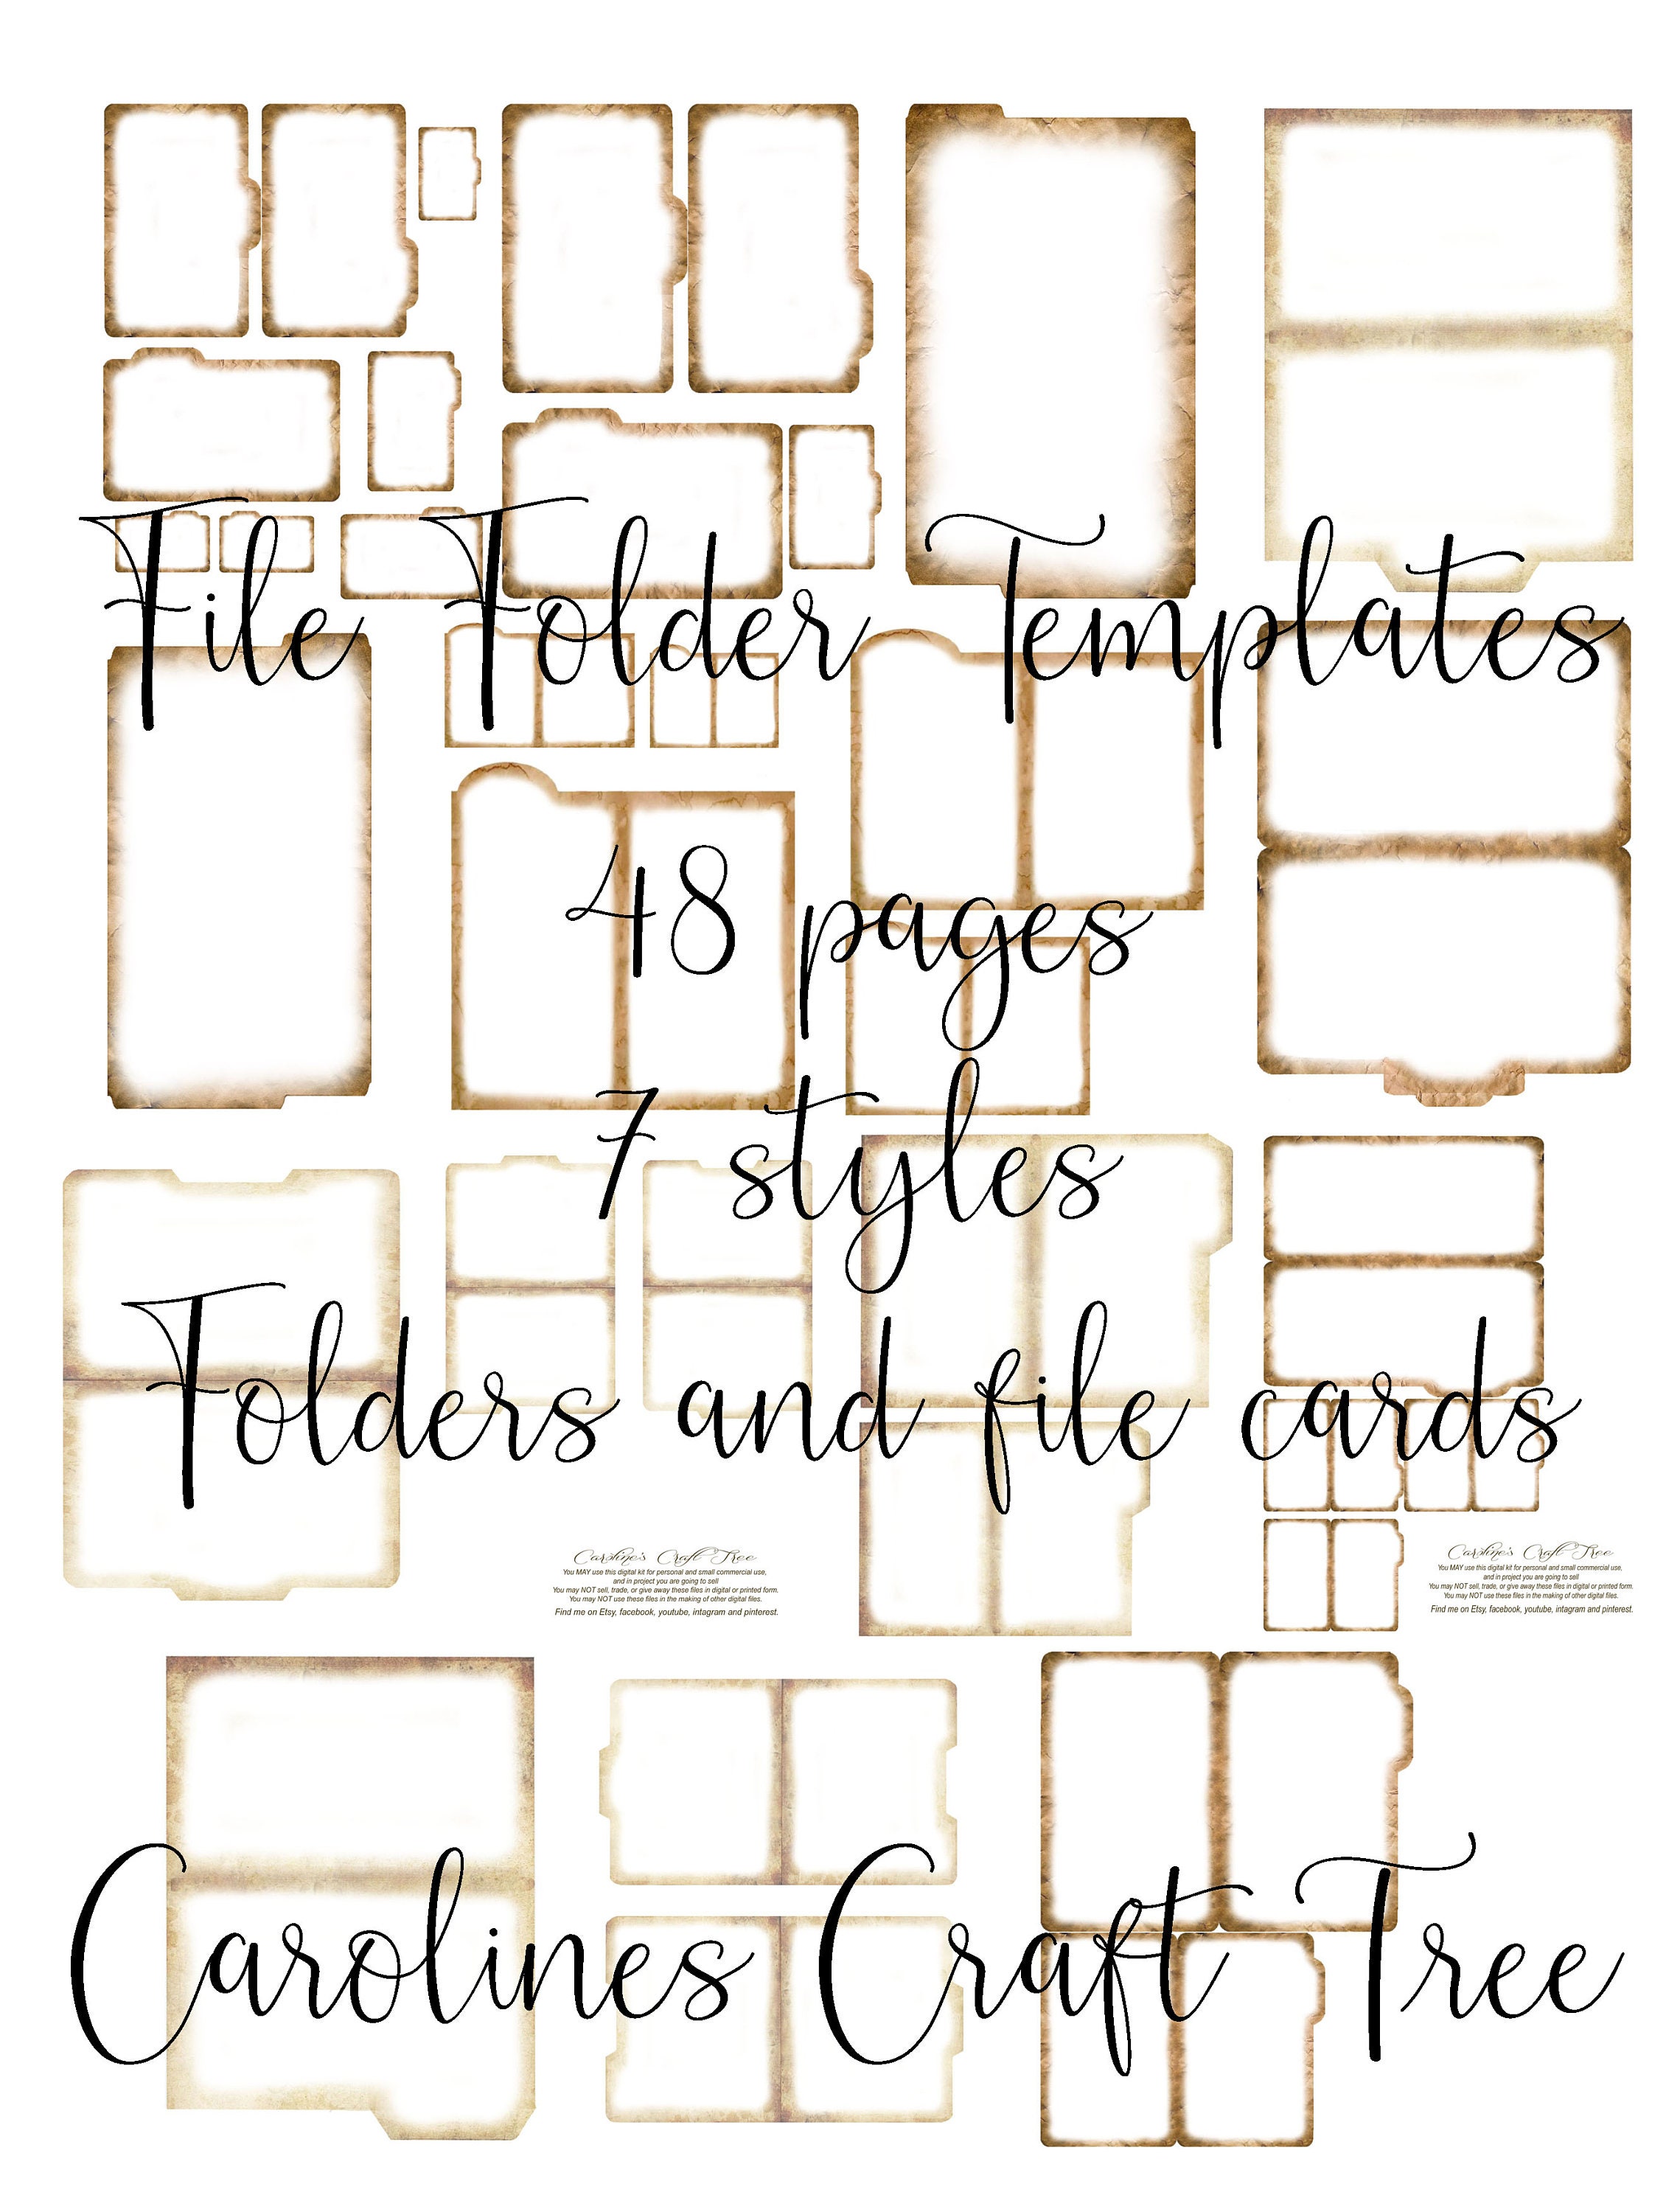 File Folder Templates
48 pages
7 styles
Folders and file cards
Caroline's Craft Tree
You MAY use this digital kit for personal and small commercial use,
and in project you are going to sell
You may NOT sell, trade, or give away these files in digital or printed form.
You may NOT use these files in the making of other digital files.
Find me on Etsy, facebook, youtube, intagram and pinterest.
Caroline's Craft Tree
You MAY use this digital kit for personal and small commercial use,
and in project you are going to sell
You may NOT sell, trade, or give away these files in digital or printed form.
You may NOT use these files in the making of other digital files.
Find me on Etsy, facebook, youtube, intagram and pinterest.
Carolines Craft Tree